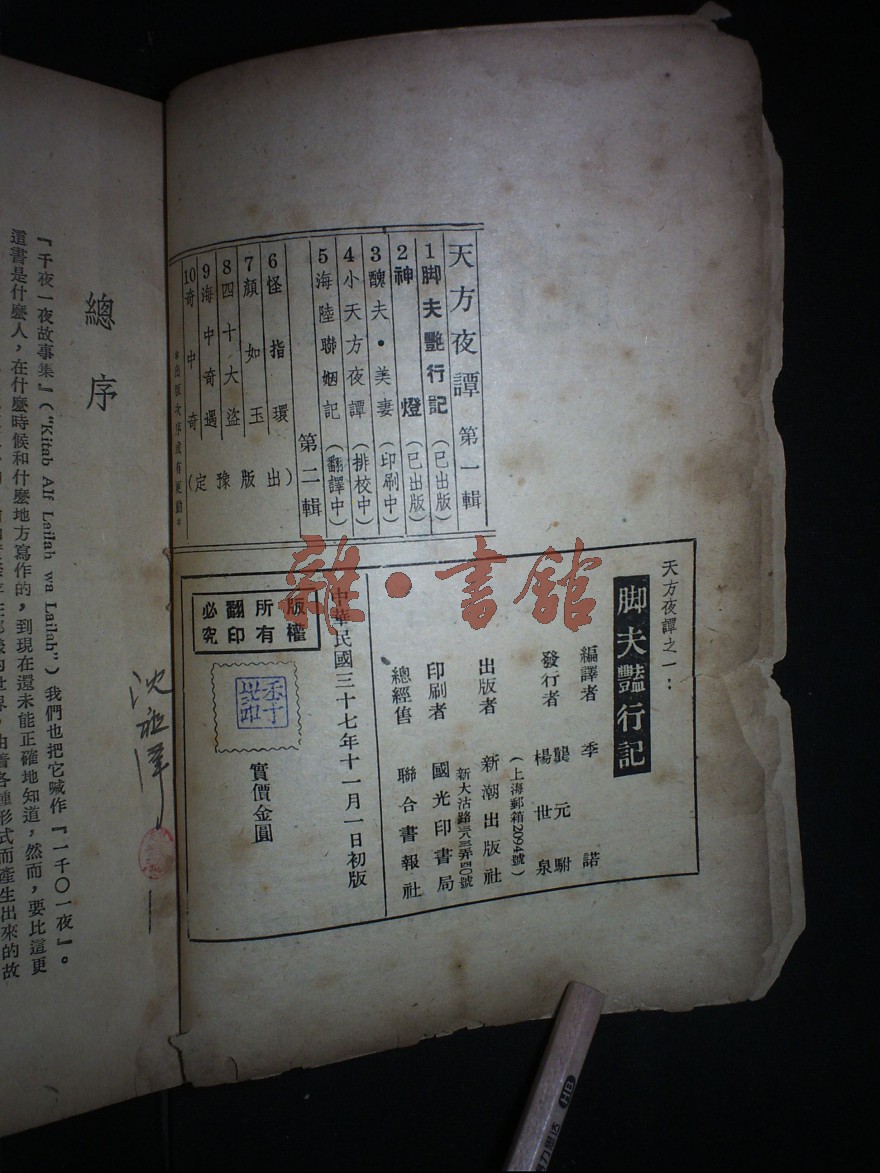 天方夜譚 第一輯
1 脚夫艷行記 (已出版)
2 神燈 (已出版)
3 醜夫·美妻 (印刷中)
4 小天方夜譚 (排校中)
5 海陸聯姻記 (翻譯中)
第二輯
6 怪指環
7 顏如玉
8 四十大盜
9 海中奇遇
10 奇中奇
(定豫版出)
*出版次序或有更動*
天方夜譚之一：
脚夫豔行記
編譯者 季諾
發行者 龔元駙
楊世泉
(上海郵箱2094號)
出版者 新潮出版社
新大沽路 弄50號
印刷者 國光印書局
總經售 聯合書報社
中華民國三十七年十一月一日初版
版權所有
翻印必究
實價金圓
總序
『千夜一夜故事集』("Kitab Alf Lailah wa Lailah") 我們也把它喊作『一千〇一夜』。
這書是什麼人，在什麼時候和什麼地方寫作的，到現在還未能正確地知道，然而，要比這更
界，由着各種形式而產生出來的故
雜·書館
HB